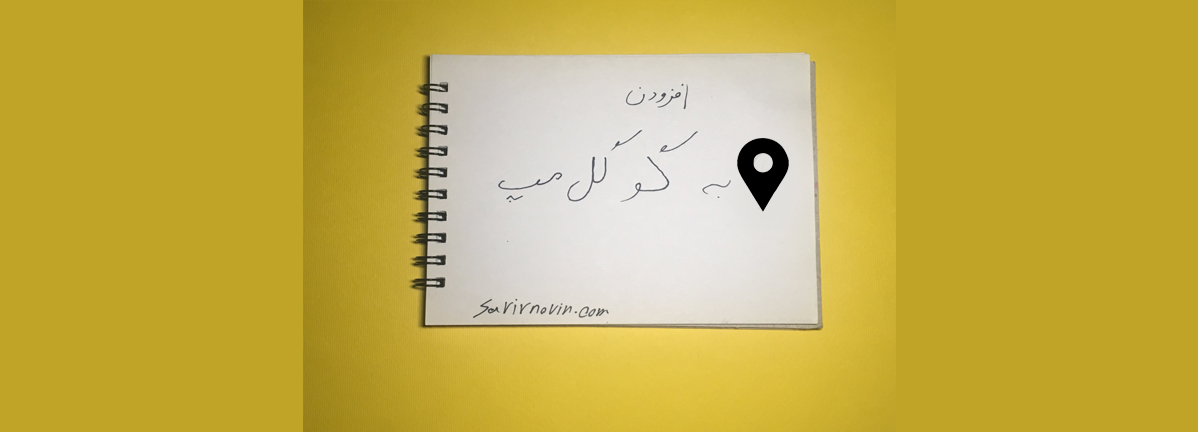 افزودن
به گوگل مپ
Savirnovin.com